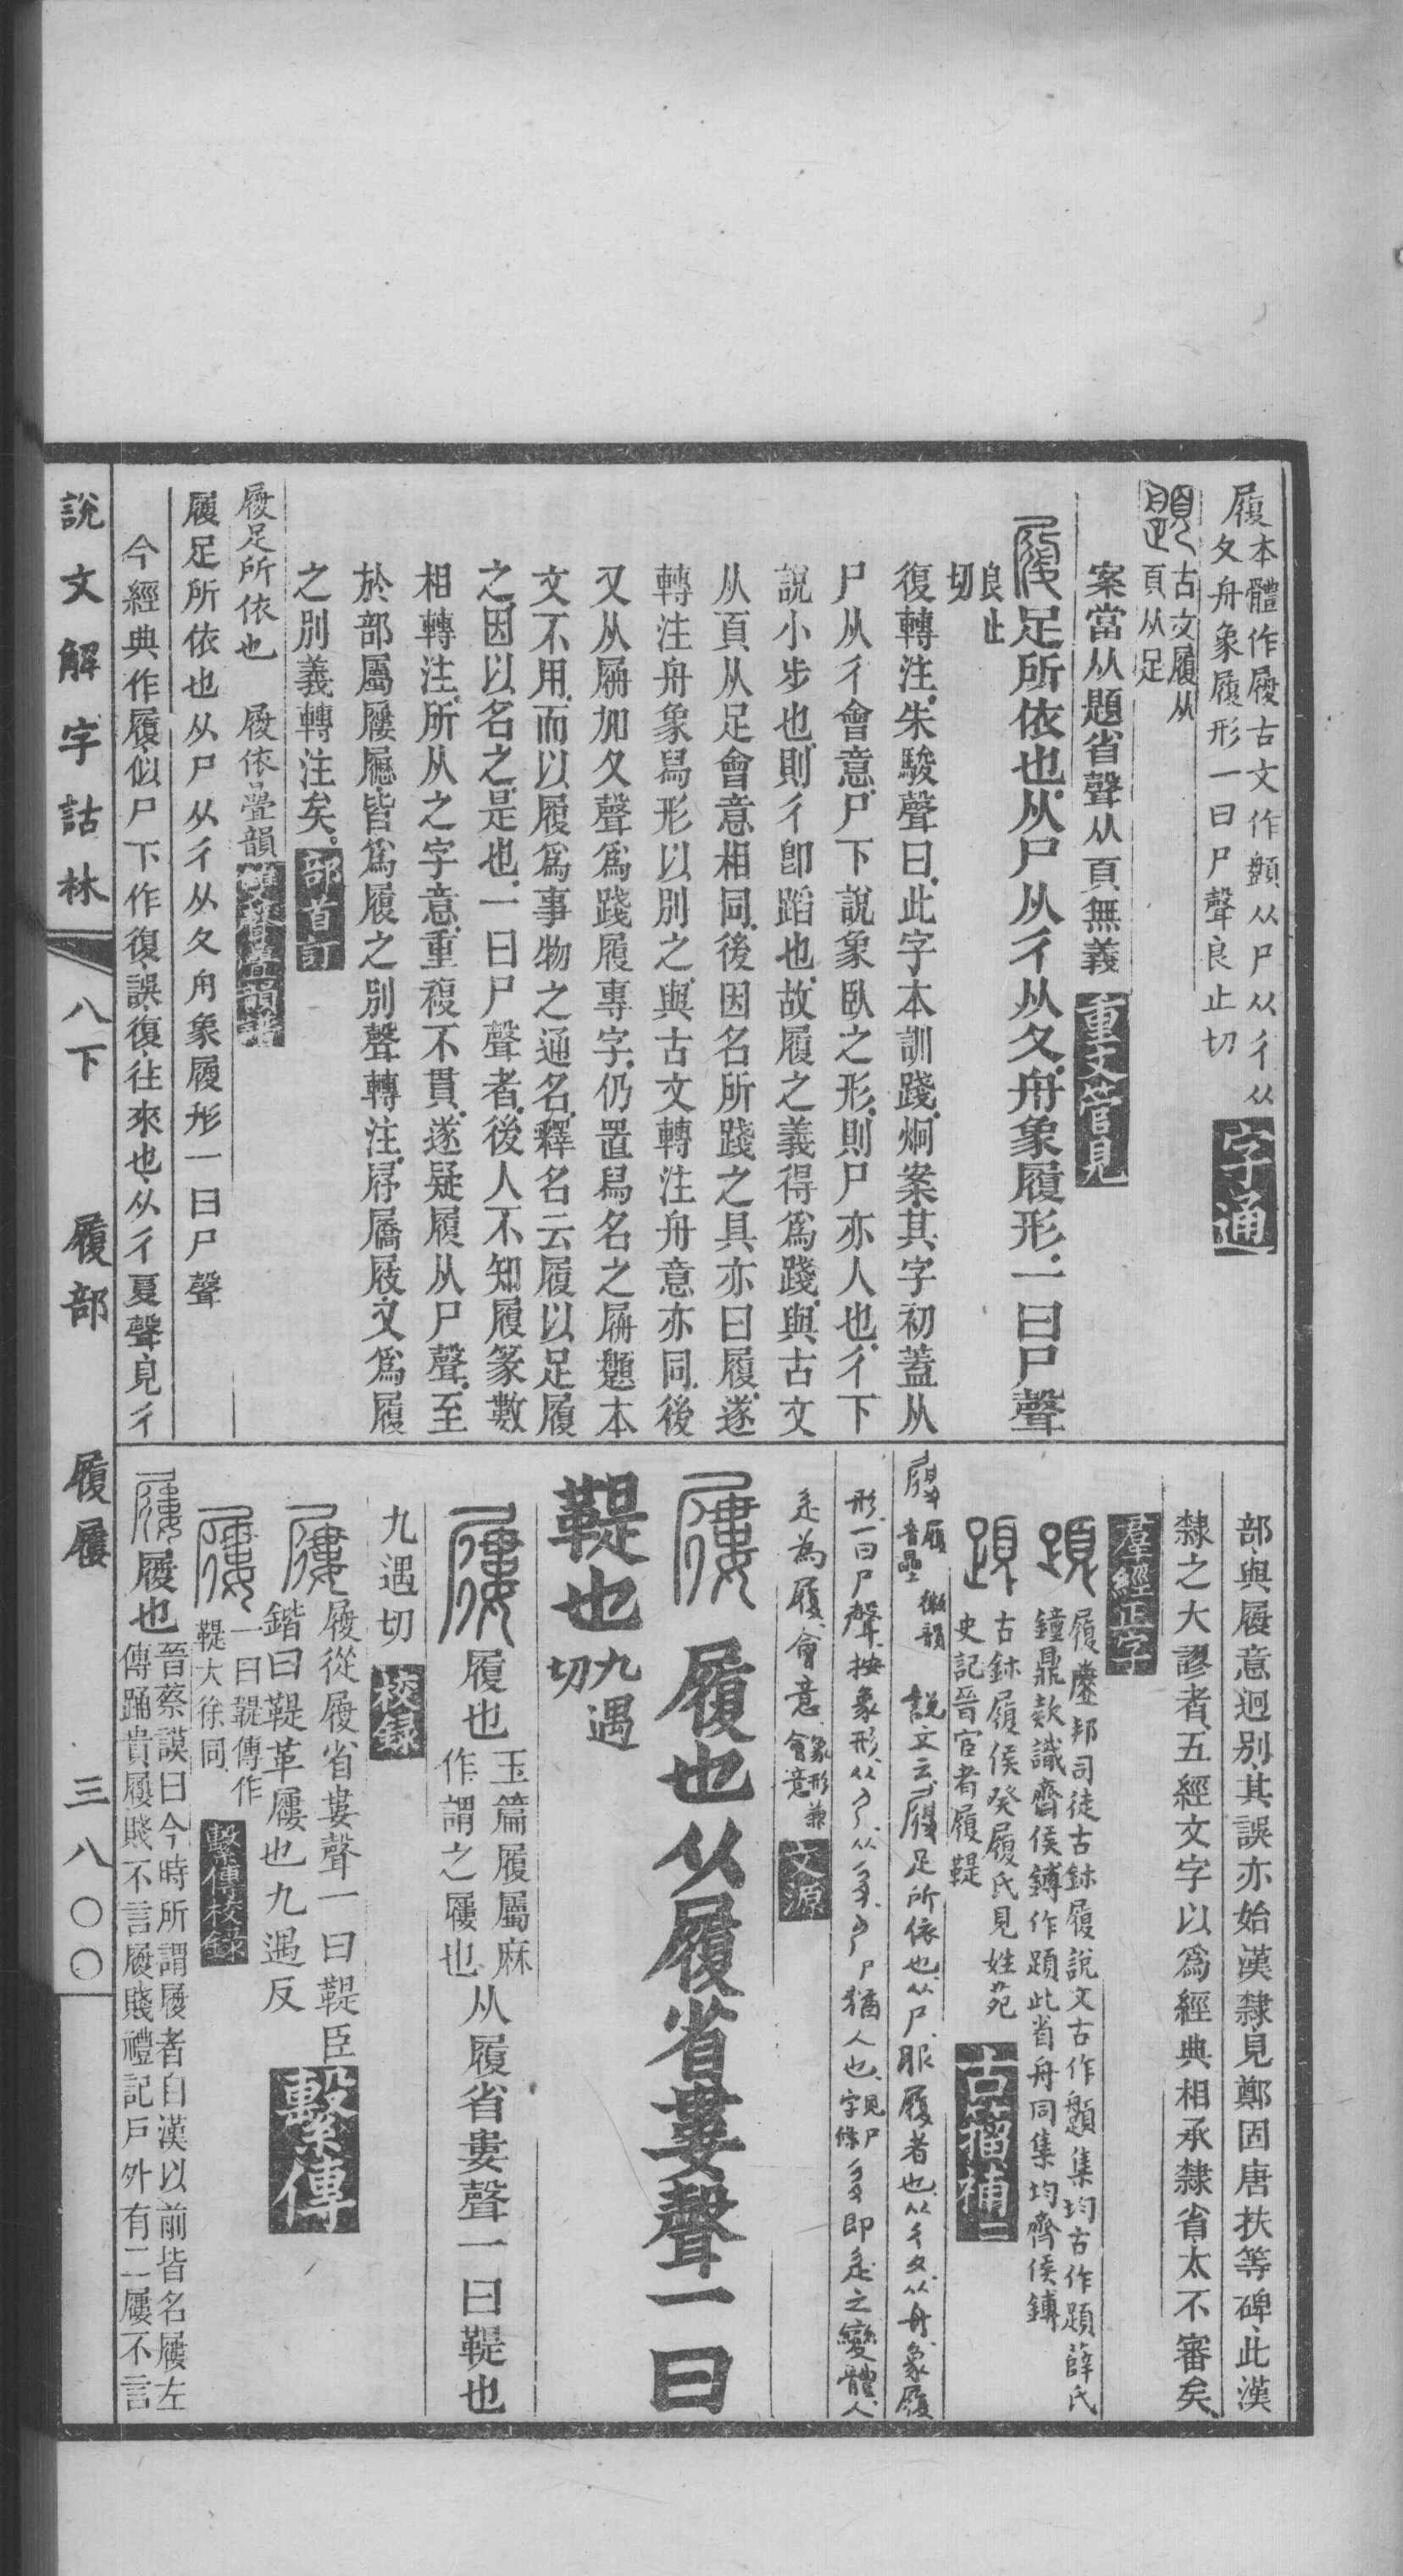 履本體作履古文作𩕎从尸从彳从
夂舟象履形一曰尸聲良止切
字通
古文履从
頁从足
案當从題省聲从頁無義
重文管見
足所依也从尸从彳从夂舟象履形一曰尸聲
良止
切
復轉注朱駿聲曰此字本訓踐炯案其字初蓋从
尸从彳會意尸下說象臥之形則尸亦人也彳下
說小步也則彳卽蹈也故履之義得爲踐與古文
从頁从足會意相同後因名所踐之具亦曰履遂
轉注舟象舄形以別之與古文轉注舟意亦同後
又从屜加夂聲爲踐履專字仍置舄名之本
文不用而以履爲事物之通名釋名云履以足履
之因以名之是也一曰尸聲者後人不知履篆數
相轉注所从之字意重複不貫遂疑履从尸聲至
於部屬屨屜皆爲履之別聲轉注屛屩屐又爲履
之別義轉注矣
部首訂
履足所依也 履依疊韻
雙聲疊韻譜
履足所依也从尸从彳从夂舟象履形一曰尸聲
今經典作履似尸下作復誤復往來也从彳夏聲見彳
部與履意迥别其誤亦始漢隸見鄭固唐扶等碑此漢
隸之大謬者五經文字以爲經典相承隸省太不審矣
羣經正字
履鏖邦司徒古鉥履說文古作集均古作䫋薛氏
鐘鼎款識齊侯鎛作䫋此省舟同集均齊侯鎛
古鉥履侯癸履氏見姓苑
史記晉宦者履鞮
古籀補二
履音壘 微韻 說文云履足所依也从尸服履者也从彳夂从舟象履
形一曰尸聲按象形从尸猶人也見尸字條即辵之變體人
辵為履會意象形兼會意
文源
屨 履也从履省婁聲一曰
鞮也九遇切
屨 履也玉篇履屬麻作謂之屨也从履省婁聲一曰鞮也
九遇切
校錄
屨 履從履省婁聲一曰鞮臣
鍇曰鞮革屨也九遇反
繫傳
屨 一曰鞮傳作
鞮大徐同
繫傳校錄
屨 履也晉蔡謨曰今時所謂履者自漢以前皆名屨左
傳踊貴屨賤不言履賤禮記戶外有二屨不言
說文解字詁林 八下 履部 履屨 三八〇〇